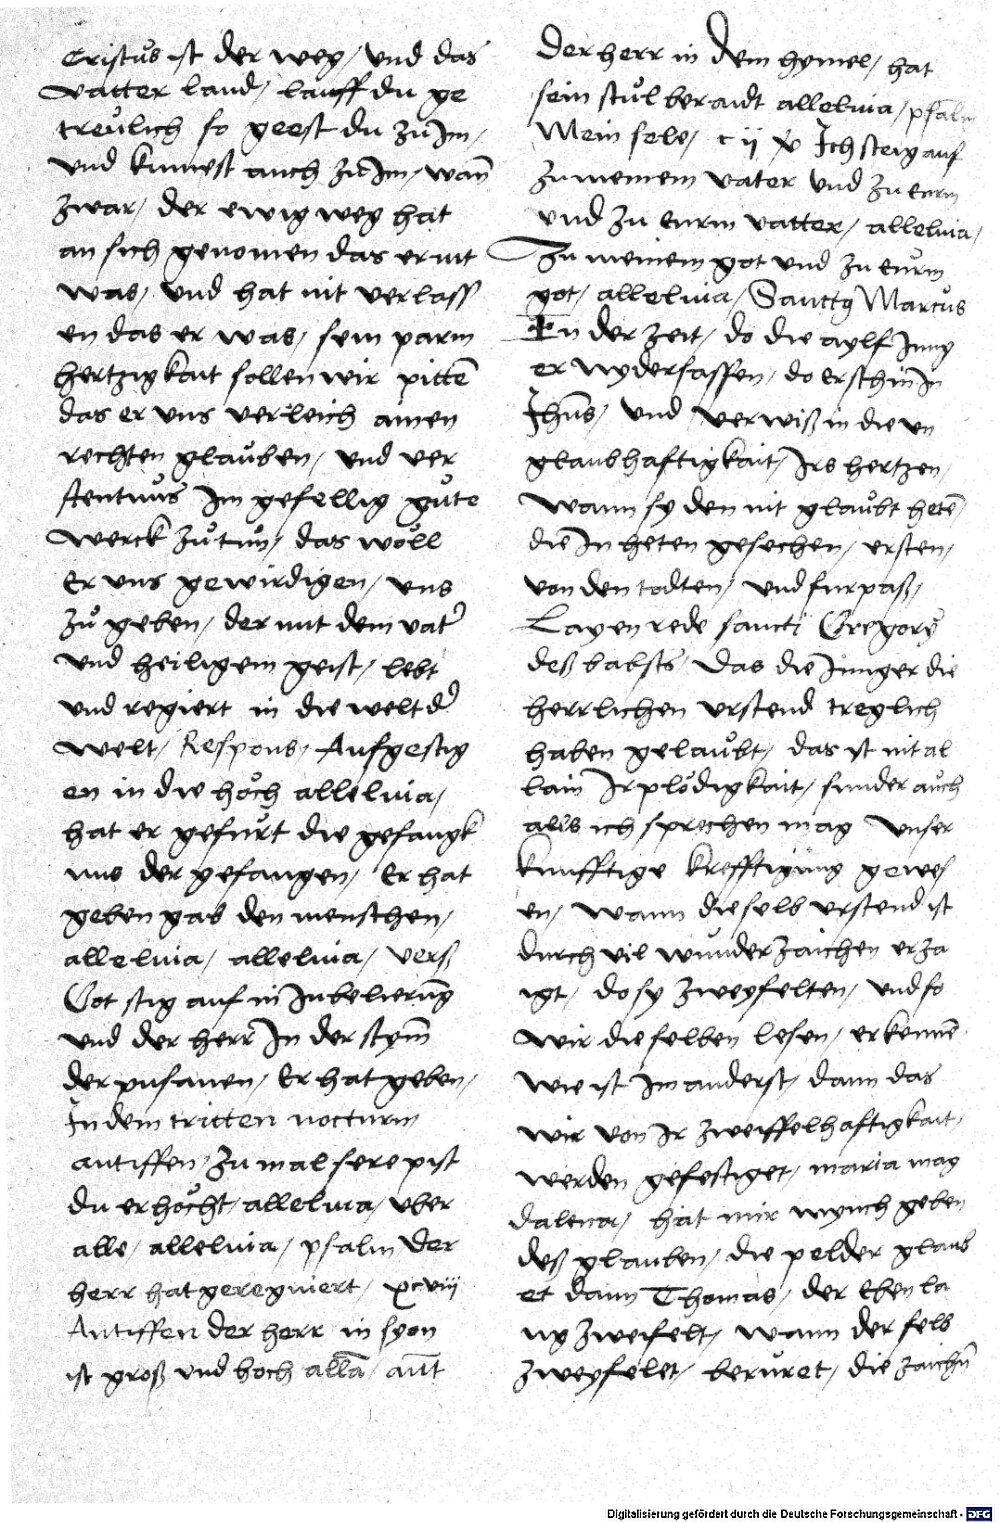 Cristus ist der weg / und das
vatter land / lauff du ge
treulich so geest du zu Im /
und kumest auch zu Im / wan̄
zwar / der ewig weg hat
an sich genomen das er nit
was / und hat nit verlass
en das er was / sein parm
hertzigkait sollen wir pittē
das er uns verleich amen
rechten glauben / und ver
stentnus Im gefellig gute
werck zů tun / das wöll
Er uns gewirdigen / uns
zů geben / der mit dem vater
und heiligem geist / lebt
und regiert in die welt der
welt / Respons / Aufgestig
en in die höch alleluia /
hat er gefůrt die gefangk
nus der gefangen / Er hat
geben gab den menschen /
alleluia / alleluia / Verß
Got stig auf in Jubelierūg
und der herr In der stym̄
der pusaunen / Er hat geben /
In dem tritten nocturn
antiffen / zu mal sere pist
du erhöcht / alleluia / uber
alle / alleluia / psalm der
herr hat geregniert / xcviij
Antiffen der herr in syon
ist groß und hoch allā / ant
Der herr in dem hymel / hat
sein stůl beraidt alleluia / psalm
Mein sele / c ij Ich steig auf
zu meinem vater und zu eurm
und zu eurm vatter / alleluia /
Zu meinem got und zu eurm
got / alleluia / Sanctus Marcus
In der zeit / do die aylf Jung
er wydersassen / do erschin In
Jhūs / und verwiß in die un
glaubhaftigkait / Irs hertzen /
wann sy den nit glaubt hetē /
die In heten gesechen / ersten /
von den todten / und furpaß /
Layen rede sancti Gregory
deß babsts / Das die Junger die
herrlichen urstend treglich
haben gelaubt / das ist nit al
lain Ir plödigkait / sunder auch
als ich sprechen mag unser
kunfftige krefftigung gewes
en / wann die selb urstend ist
durch vil wunderzaichen erza
igt / do sy zweyfelten / und so
wir die selben lesen / erkennē
wie ist Im anderst / dann das
wir von Ir zweiffelhaftigkait /
werden gefestiget / maria mag
dalena / hat mir wynch geben
deß glauben / die pelder glaub
et dann Thomas / der eben la
ng zweifelt / wann der selb
zweyfelet / beruret / die zaichn̄
Digitalisierung gefördert durch die Deutsche Forschungsgemeinschaft - DFG